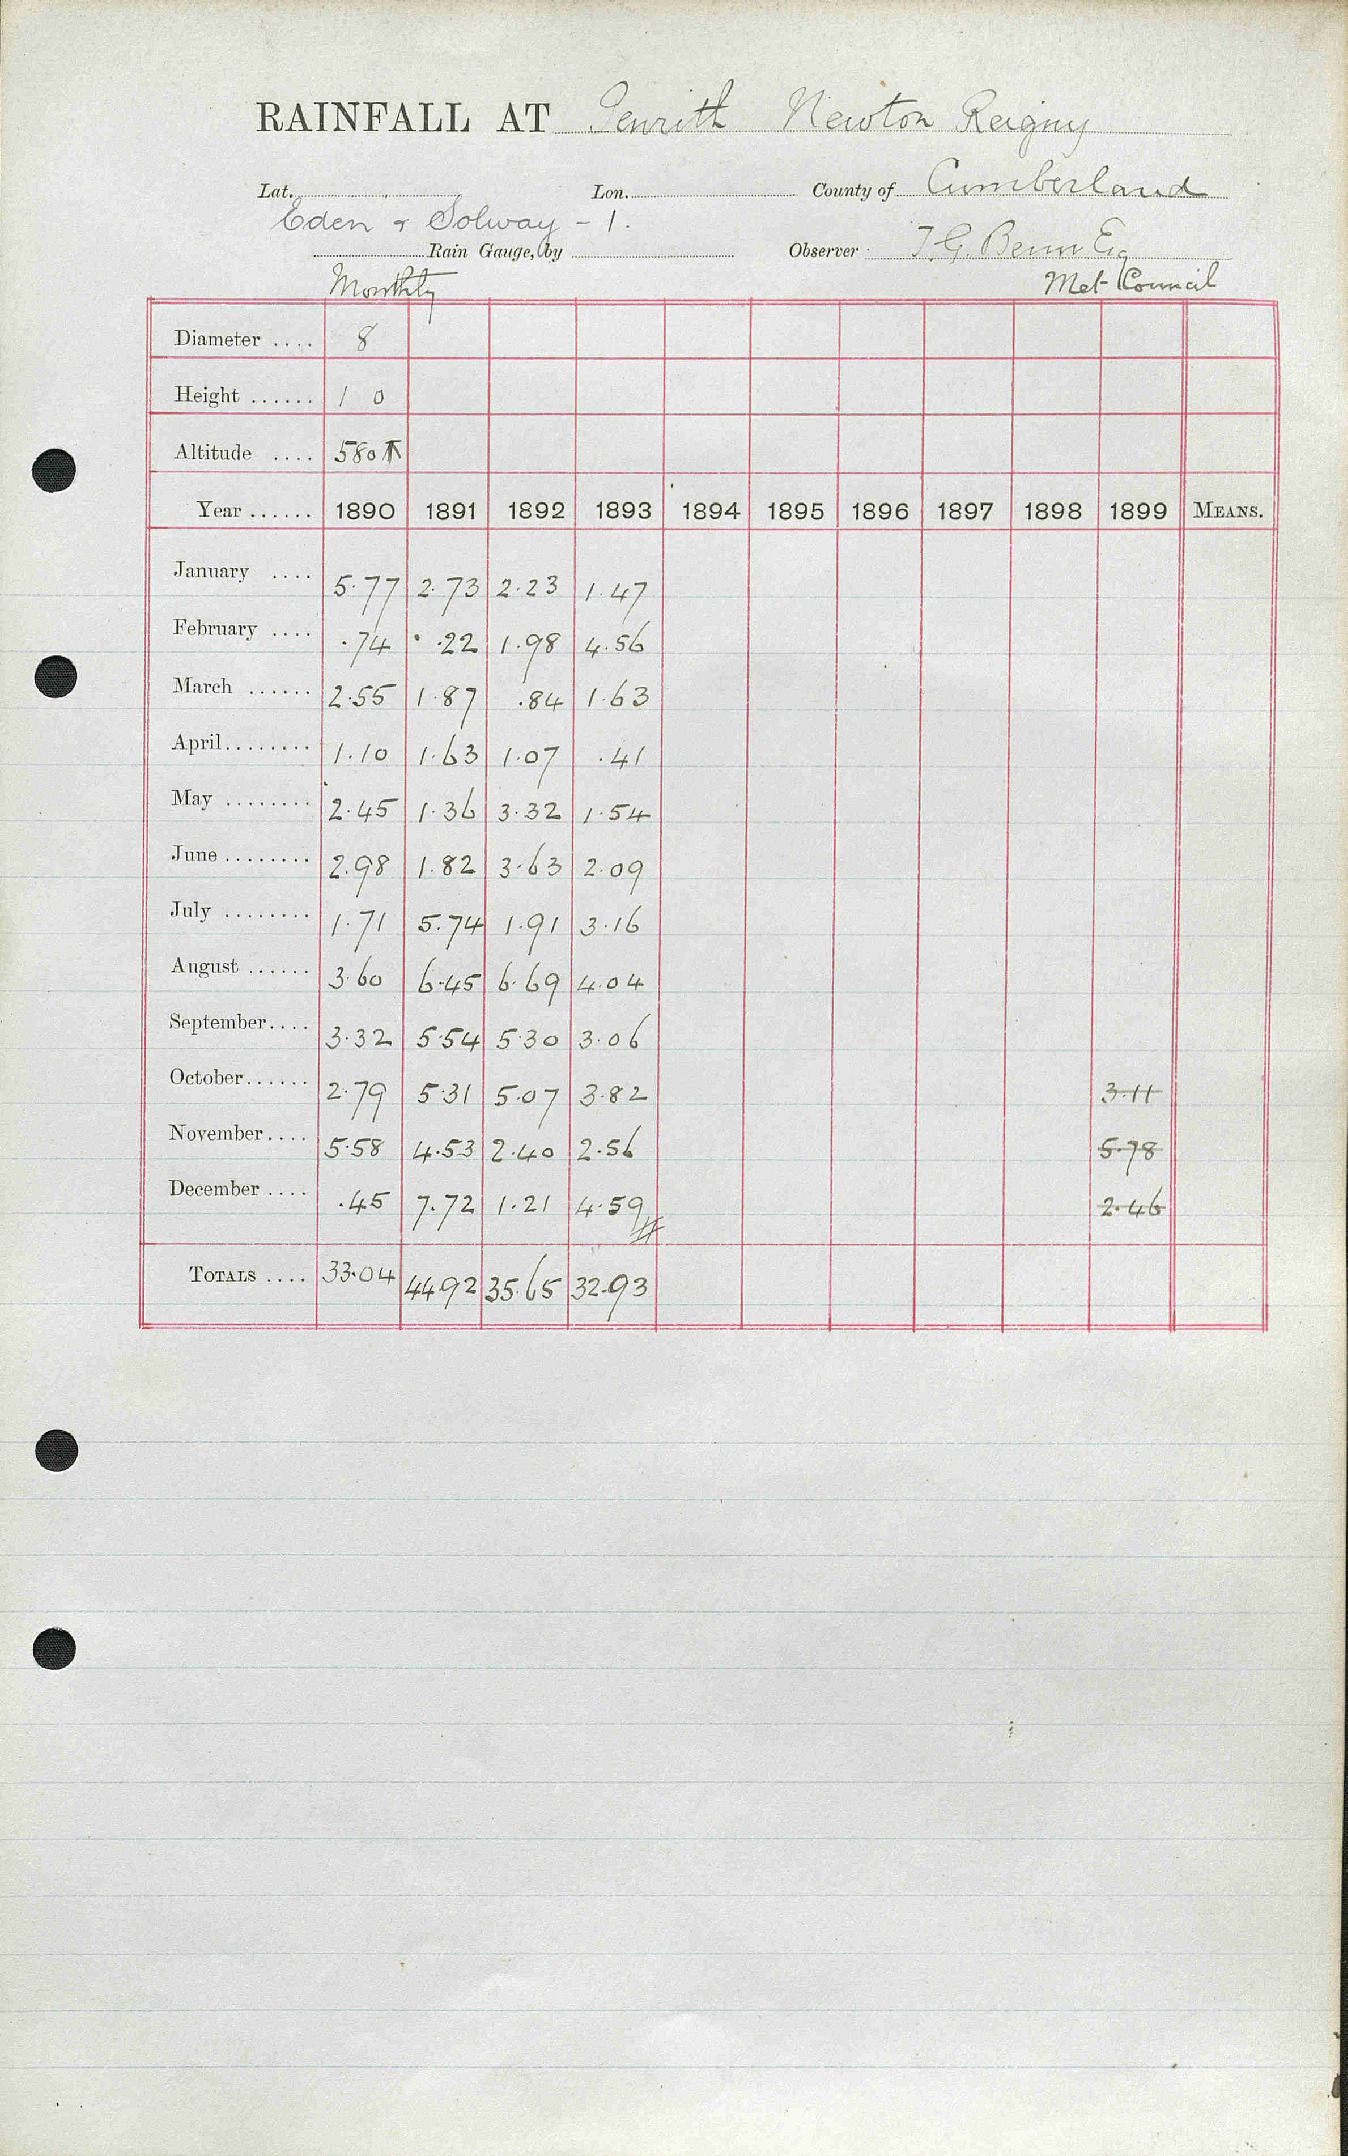 RAINFALL AT Penrith Newton Reigny
Lat. Lon. County of Cumberland
Eden & Solway - 1.
Rain Gauge, by Observer T. G. Benn Esq
Monthly Met Council
Diameter .... 8
Height ...... 1 0
Altitude .... 580
Year ...... 1890 1891 1892 1893 1894 1895 1896 1897 1898 1899 MEANS.
January .... 5.77 2.73 2.23 1.47
February .... .74 .22 1.98 4.56
March ...... 2.55 1.87 .84 1.63
April........ 1.10 1.63 1.07 .41
May ........ 2.45 1.36 3.32 1.54
June ........ 2.98 1.82 3.63 2.09
July ........ 1.71 5.74 1.91 3.16
August ...... 3.60 6.45 6.69 4.04
September.... 3.32 5.54 5.30 3.06
October...... 2.79 5.31 5.07 3.82 3.11
November.... 5.58 4.53 2.40 2.56 5.78
December .... .45 7.72 1.21 4.59 2.46
TOTALS .... 33.04 44.92 35.65 32.93